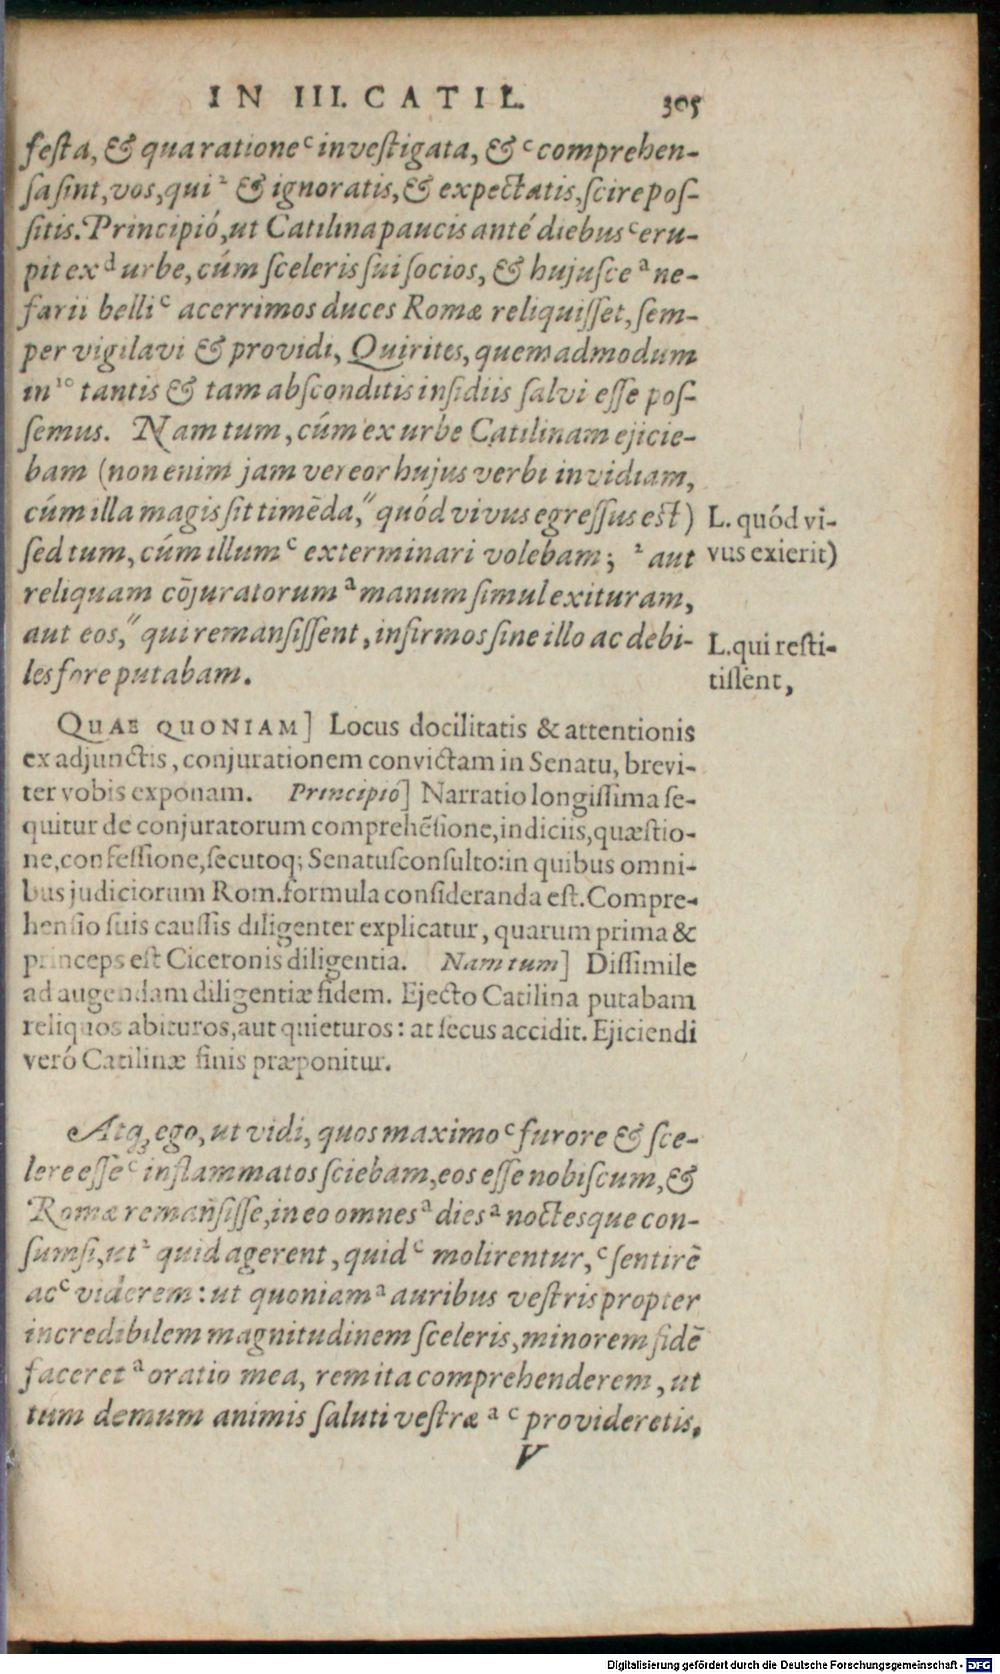 IN III. CATIL. 305
festa, & qua ratione ᶜ investigata, & ᶜ comprehen-
sa sint, vos, qui ² & ignoratis, & expectatis, scire pos-
sitis. Principió, ut Catilina paucis anté diebus ᶜ eru-
pit ex ᵃ urbe, cúm sceleris sui socios, & hujusce ᵃ ne-
farii belli ᶜ acerrimos duces Romæ reliquisset, sem-
per vigilavi & providi, Quirites, quemadmodum
in ¹⁰ tantis & tam absconditis insidiis salvi esse pos-
semus. Nam tum, cúm ex urbe Catilinam ejicie-
bam (non enim jam vereor hujus verbi invidiam,
cúm illa magis sit timēda, " quód vivus egressus est)
L. quód vi-
vus exierit)
sed tum, cúm illum ᶜ exterminari volebam; ² aut
reliquam cōjuratorum ᵃ manum simul exituram,
aut eos, " qui remansissent, infirmos sine illo ac debi-
L. qui resti-
tissent,
les fore putabam.
QUAE QUONIAM] Locus docilitatis & attentionis
ex adjunctis, conjurationem convictam in Senatu, brevi-
ter vobis exponam. Principió] Narratio longissima se-
quitur de conjuratorum comprehēsione, indiciis, quæstio-
ne, confessione, secutoq; Senatusconsulto: in quibus omni-
bus judiciorum Rom. formula consideranda est. Compre-
hensio suis caussis diligenter explicatur, quarum prima &
princeps est Ciceronis diligentia. Nam tum] Dissimile
ad augendam diligentiæ fidem. Ejecto Catilina putabam
reliquos abituros, aut quieturos: at secus accidit. Ejiciendi
veró Catilinæ finis præponitur.
Atq; ego, ut vidi, quos maximo ᶜ furore & sce-
lere esse ᶜ inflammatos sciebam, eos esse nobiscum, &
Romæ remansisse, in eo omnes ᵃ dies ᵃ noctesque con-
sumsi, ut ² quid agerent, quid ᶜ molirentur, ᶜ sentirē
ac ᶜ viderem: ut quoniam ᵃ auribus vestris propter
incredibilem magnitudinem sceleris, minorem fidē
faceret ᵃ oratio mea, rem ita comprehenderem, ut
tum demum animis saluti vestræ ᵃ ᶜ provideretis,
V
Digitalisierung gefördert durch die Deutsche Forschungsgemeinschaft - DFG